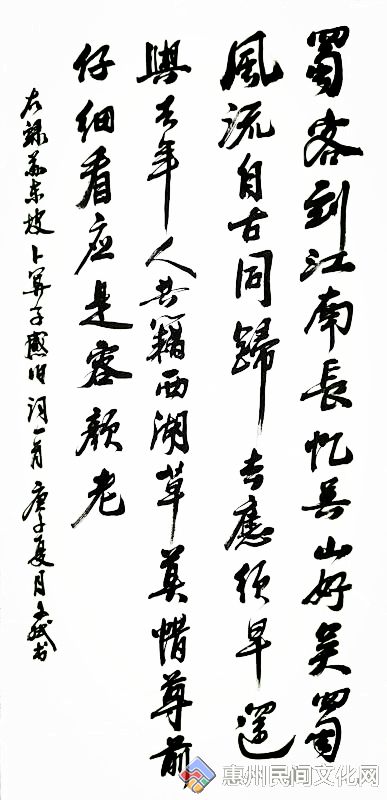 蜀客到江南長忆吴山好吴蜀
風流自古同歸去應須早還
與去年人共藉西湖草莫惜尊前
仔细看应是容颜老
右録苏东坡卜算子感旧词一首庚子夏月文斌书
惠州民间文化网